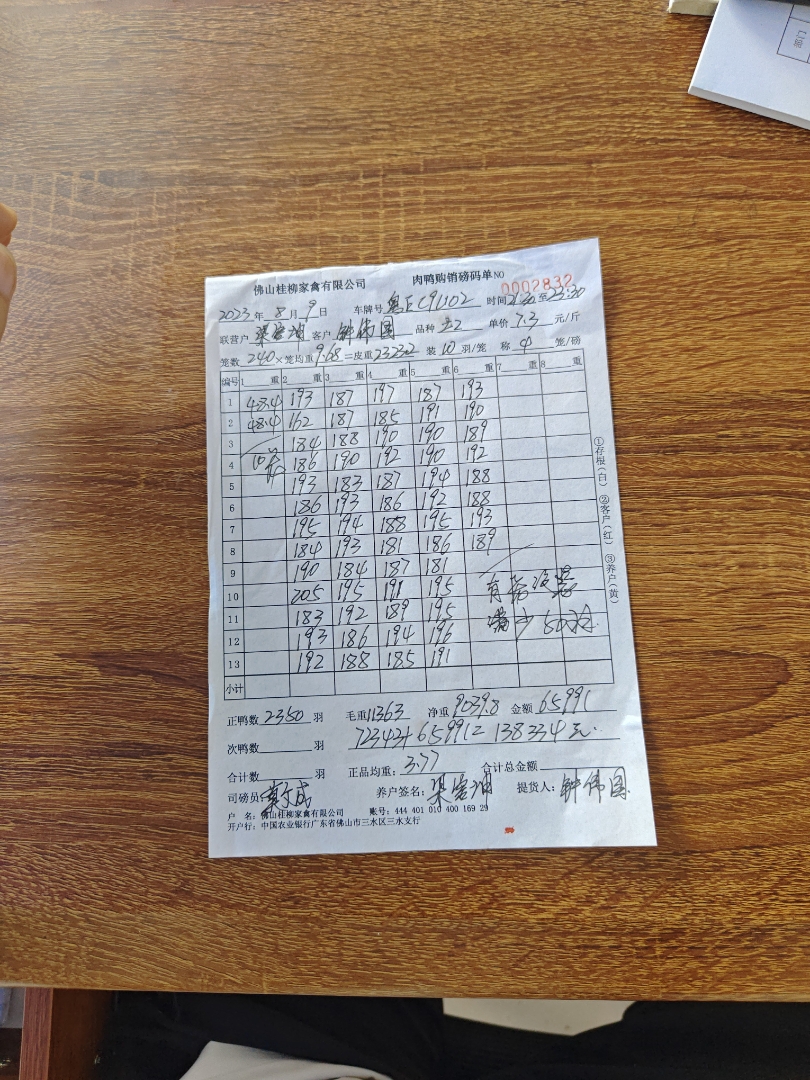 佛山桂柳家禽有限公司 肉鸭购销磅码单 NO 0002832
2023年 8月 9日 车牌号 粤EC9U02 时间 21:30 至 23:30
联营户 客户 钟伟国 品种 单价 7.3 元/斤
笼数 240 ×笼均重 9.68 =皮重 2323.2 装 10 羽/笼 称 4 笼/磅
编号 1 重 2 重 3 重 4 重 5 重 6 重 7 重 8 重
1 48.4 193 187 197 187 193
2 48.4 162 187 185 191 190
3 184 188 190 190 189
4 10 186 190 192 190 192
5 193 183 187 194 188
6 186 193 186 192 188
7 195 194 188 195 193
8 184 193 181 186 189
9 190 184 187 181
10 205 195 191 195
11 183 192 189 195
12 193 186 194 196
13 192 188 185 191
小计
①存根(白) ②客户(红) ③养户(黄)
正鸭数 2350 羽 毛重 11363 净重 9039.8 金额 65991
次鸭数 羽 72343+65991=138334元.
合计数 羽 正品均重: 3.77 合计总金额
司磅员: 养户签名: 提货人: 钟伟国
户 名: 佛山桂柳家禽有限公司 账号: 444 401 010 400 169 29
开户行: 中国农业银行广东省佛山市三水区三水支行